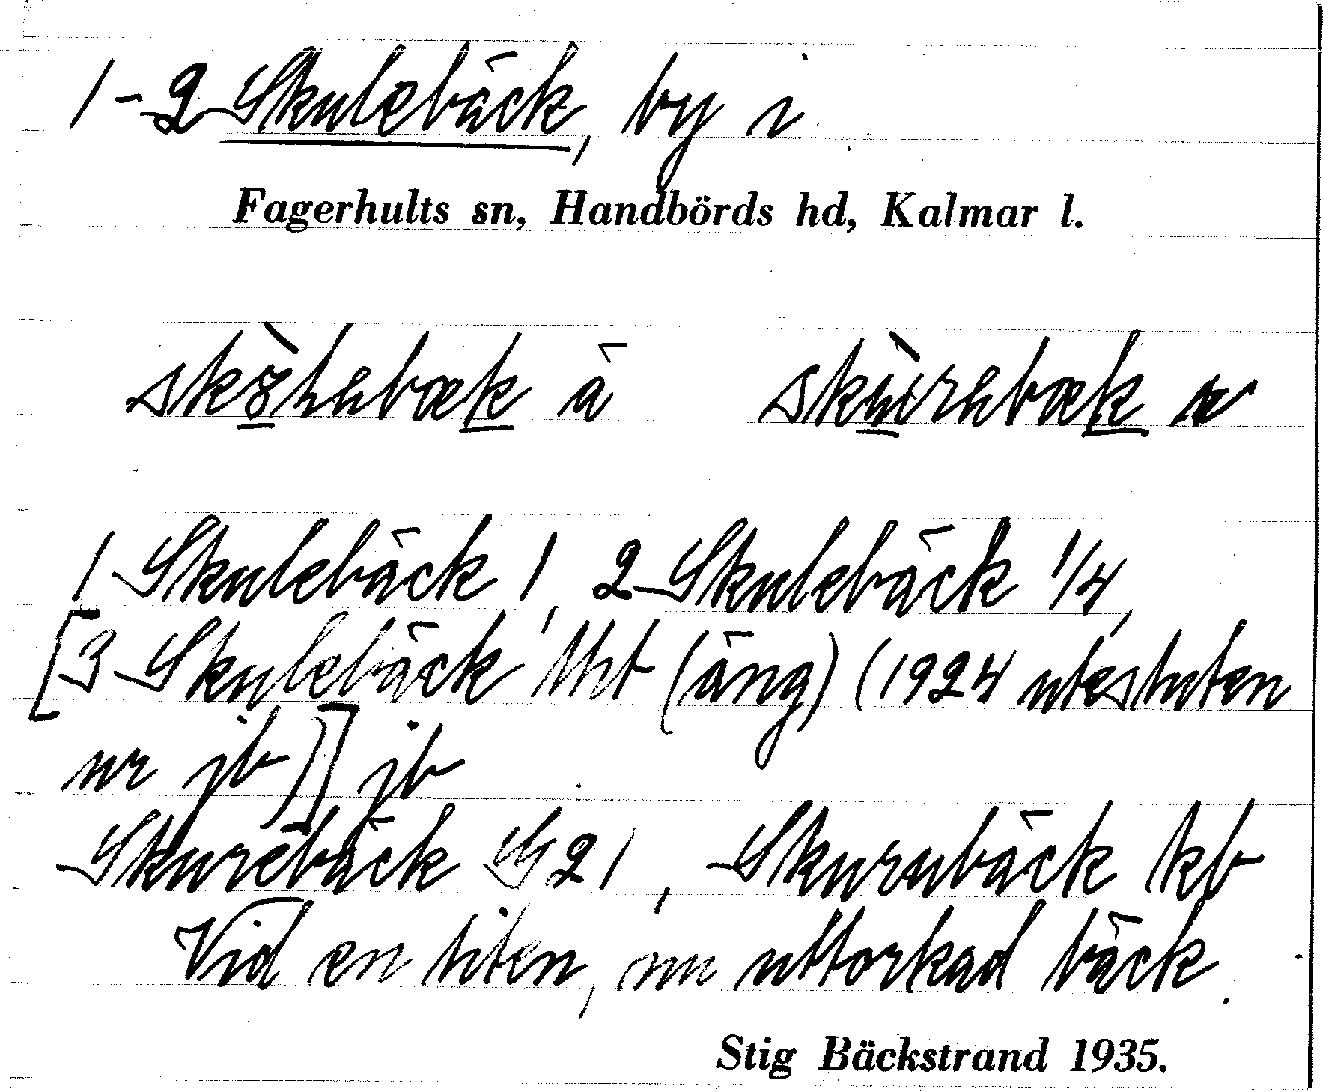 1-2 Skulebäck, by i
Fagerhults sn, Handbörds hd, Kalmar l.
1 Skulebäck 1, 2 Skulebäck 1/4,
[3 Skulebäck Uht (äng) (1924 utesluten
ur jb)] jb
Skurebäck G 21, Skurubäck kb
Vid en liten, nu uttorkad bäck.
Stig Bäckstrand 1935.